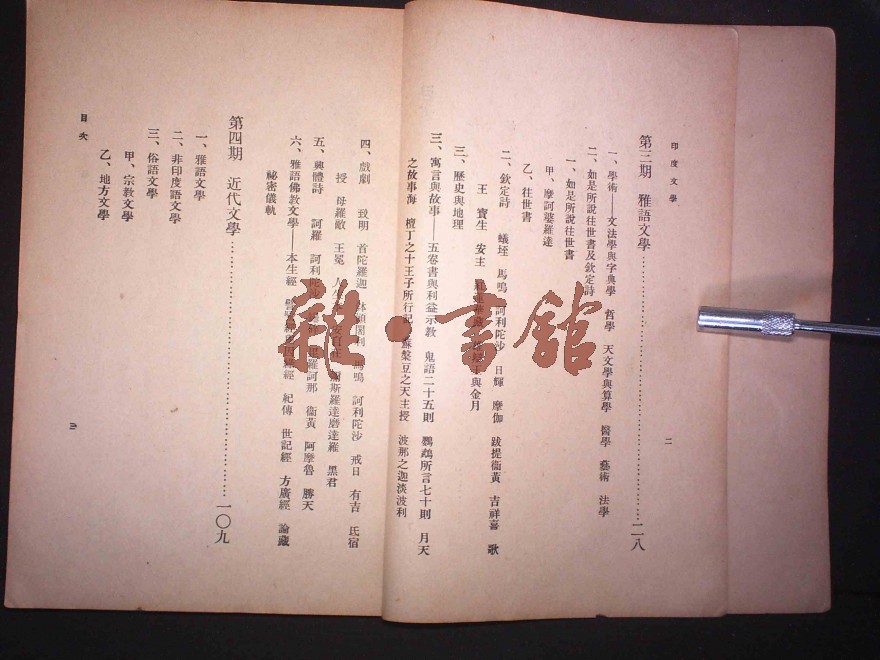 印度文學
第三期 雅語文學 二八
一、學術——文法學與字典學 哲學 天文學與算學 醫學 藝術 法學
二、如是所說往世書及欽定詩
一、如是所說往世書
甲、摩訶婆羅達
乙、往世書
二、欽定詩 蟻垤 馬鳴 訶利陀沙 日輝 摩伽 跋提衞黃 吉祥喜 歌
王 寶生 安主 與金月
三、歷史與地理
三、寓言與故事——五卷書與利益示教 鬼語二十五則 鸚鵡所言七十則 月天
之故事海 檀丁之十王子所行記 蘇槃豆之天主授 波那之迦淡波利
二
四、戲劇 致明 首陀羅迦 馬鳴 訶利陀沙 戒日 有吉 氐宿
授 母羅敵 王冕 黑君
五、興體詩 訶羅 訶利陀沙 衞黃 阿摩魯 勝天
六、雅語佛教文學——本生經 紀傳 世記經 方廣經 論藏
祕密儀軌
第四期 近代文學 一〇九
一、雅語文學
二、非印度語文學
三、俗語文學
甲、宗教文學
乙、地方文學
目次
三
雜·書館